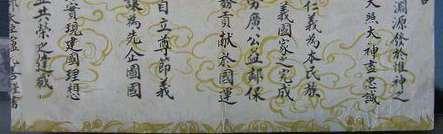 淵源發於惟神之
天照大神盡忠誠
仁義為本民族
義國家之完成
勞廣公益鄰保
務貢献於國運
自立尊節義
讓為先企圖國
實現建國理想
亞共榮之達成